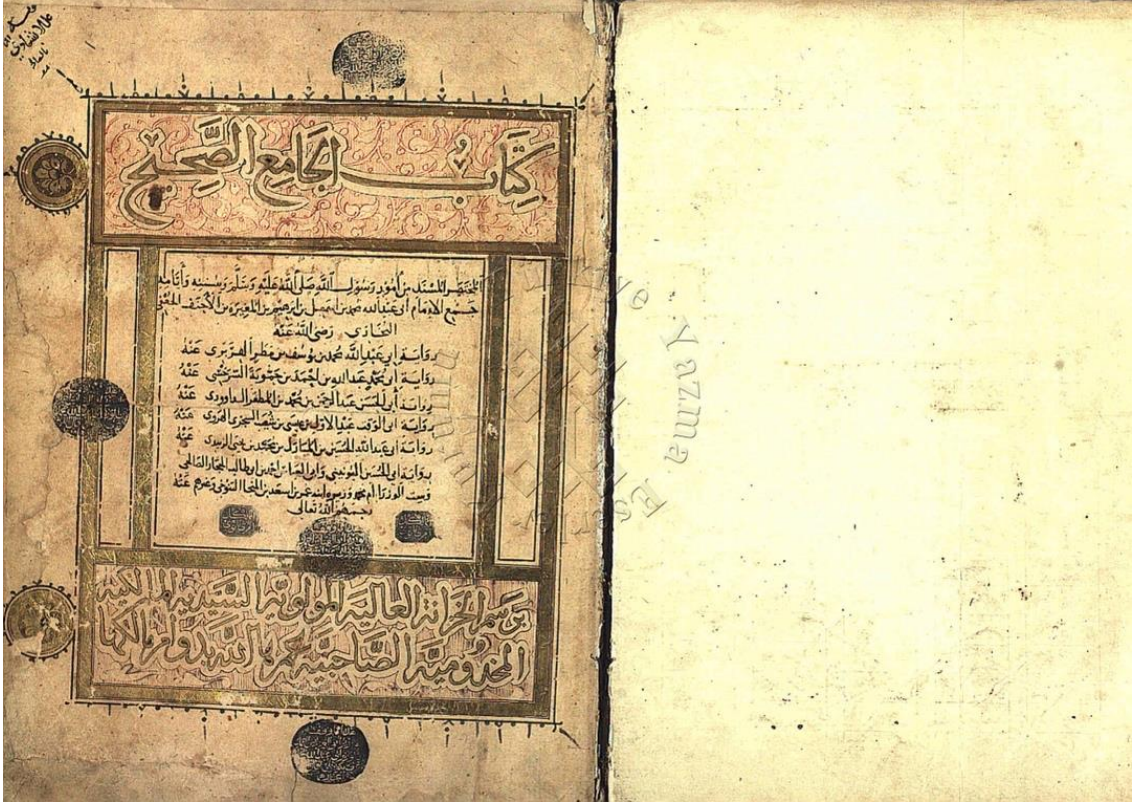 كتاب الجامع الصحيح
المختصر المسند من أمور رسول الله صلى الله عليه وسلم وسننه وأيامه
جمع الإمام أبي عبد الله محمد بن إسمعيل بن إبرهيم بن المغيرة بن الأحنف الجعفي
البخاري رضي الله عنه
رواية أبي عبد الله محمد بن يوسف بن مطر الفربري عنه
رواية أبي محمد عبد الله بن أحمد بن حموية السرخسي عنه
رواية أبي الحسن عبد الرحمن بن محمد بن المظفر الداوودي عنه
رواية أبي الوقت عبد الأول بن عيسى بن شعيب السجزي الهروي عنه
رواية أبي عبد الله الحسين بن المبارك بن محمد بن يحيى الزبيدي عنه
رواية أبي الحسين اليونيني وأبي العباس أحمد بن أبي طالب الحجار الصالحي
وست الوزرا أم محمد وزيره ابنة عمر بن أسعد بن المنجا التنوخي وغيرهم عنه
رحمهم الله تعالى
برسم الخزانة العالية المولوية السيدية المالكية
المخدومية الصاحبية عمرها الله بدوام مالكها
Yazma Eserler